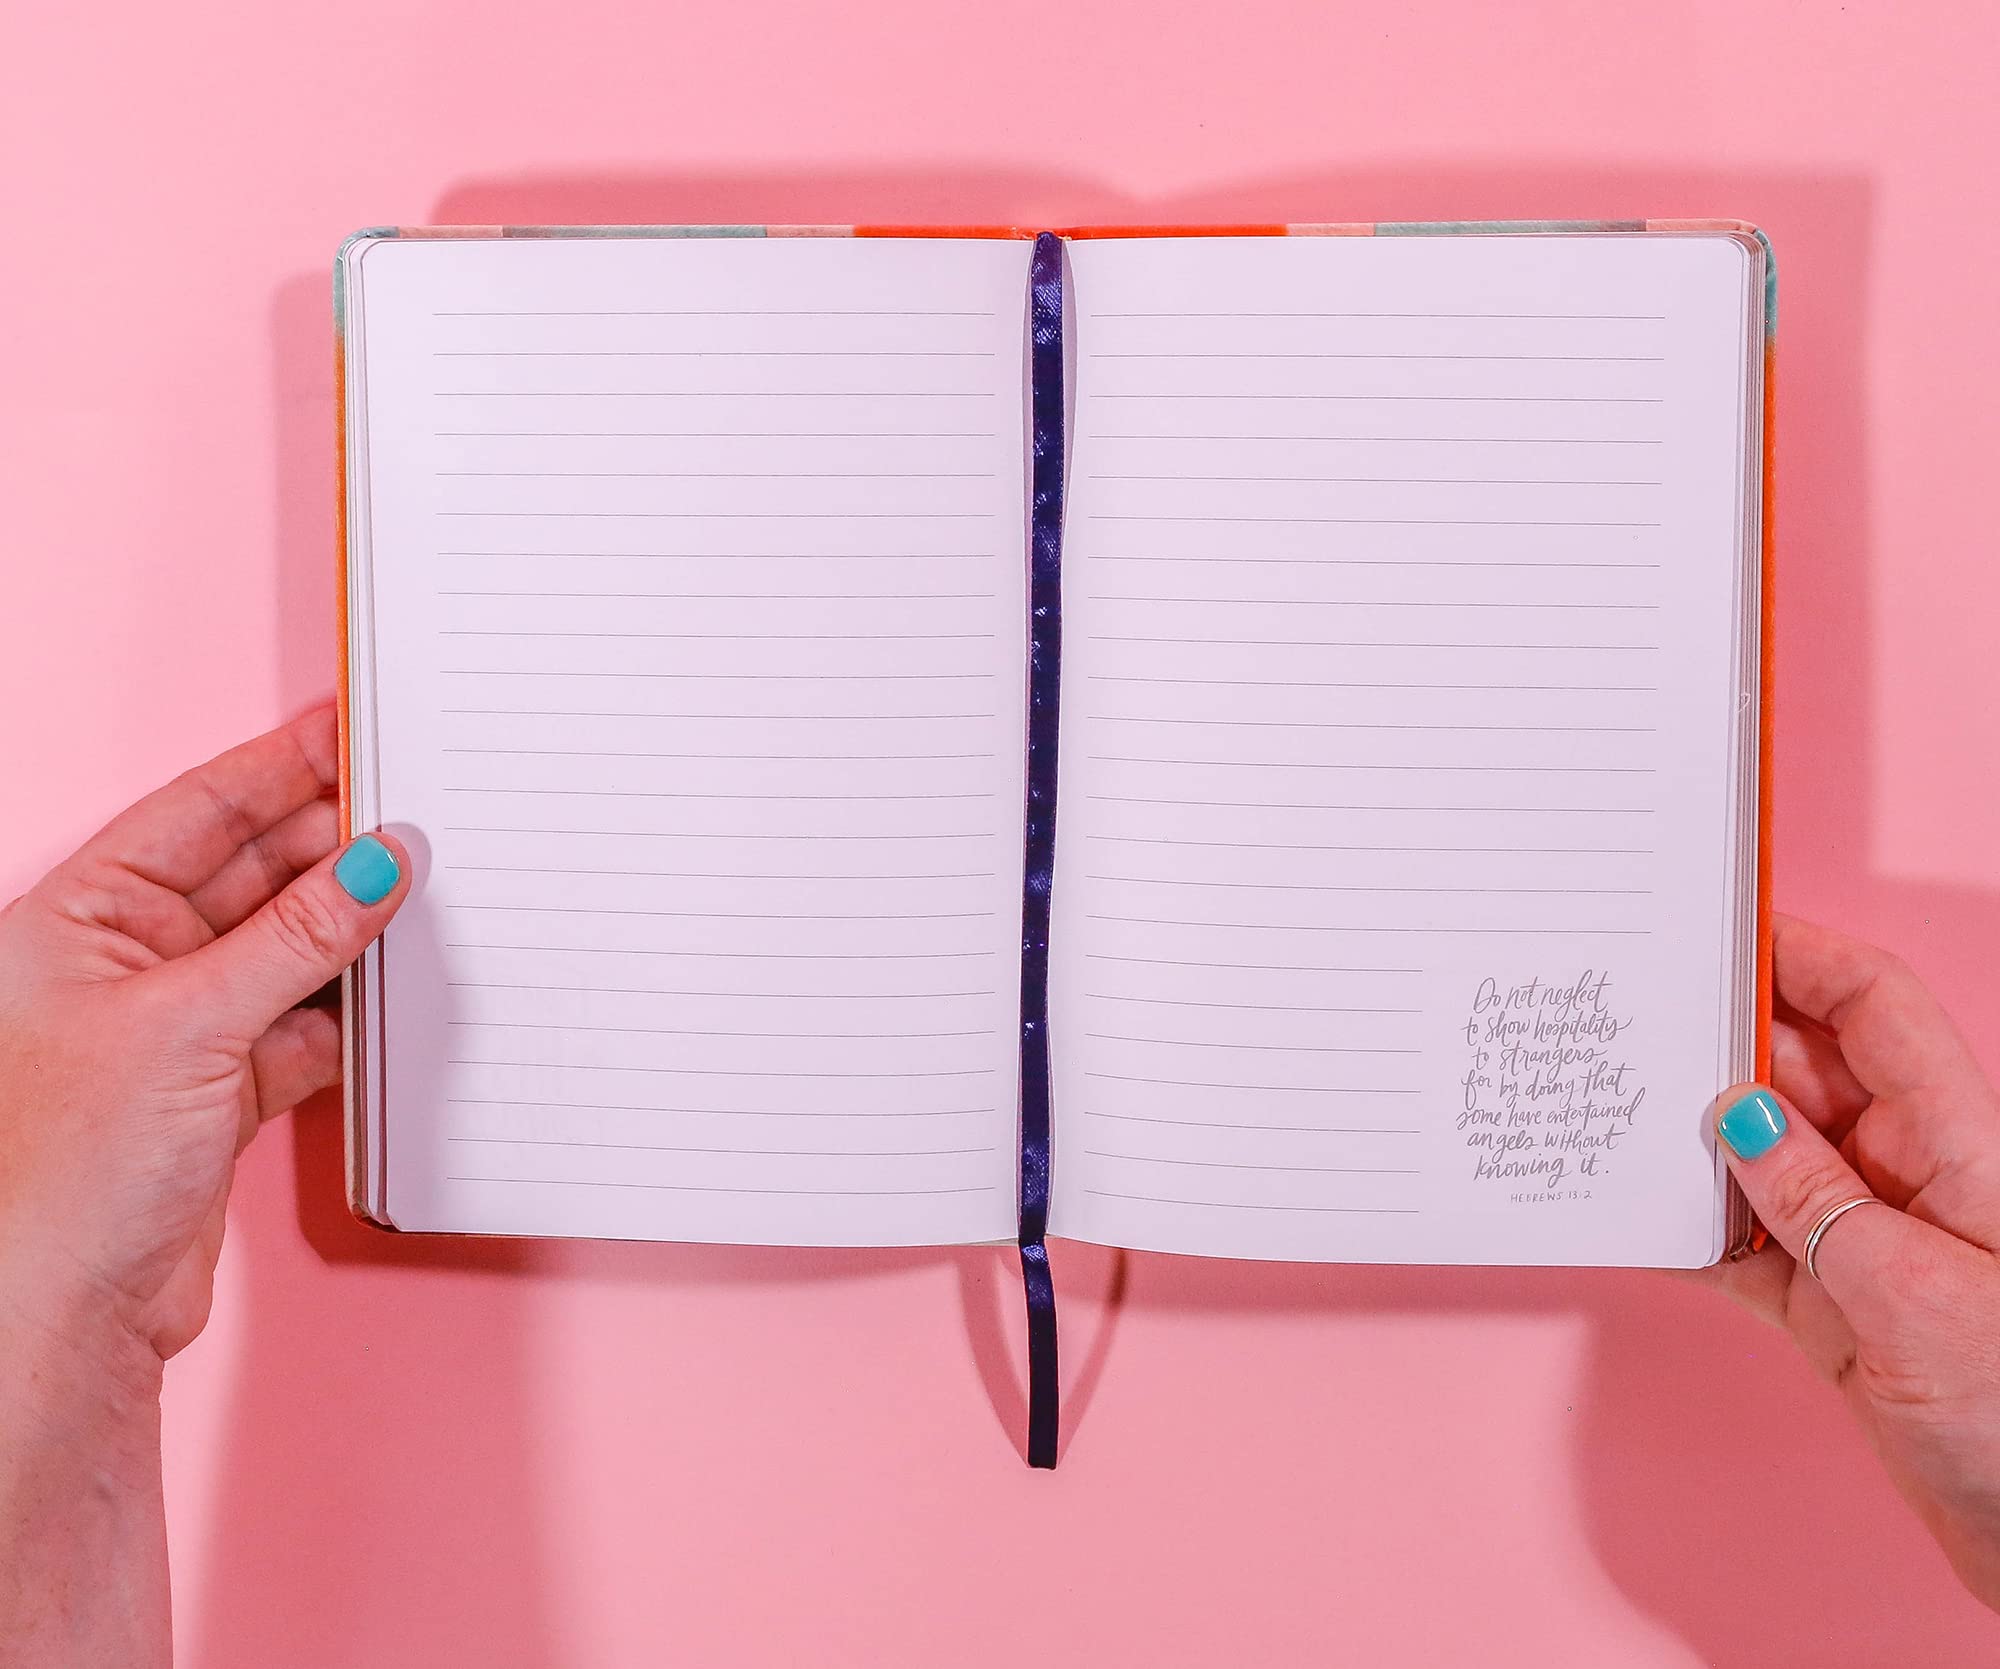 Do not neglect
to show hospitality
to strangers,
for by doing that
some have entertained
angels without
knowing it.
HEBREWS 13:2